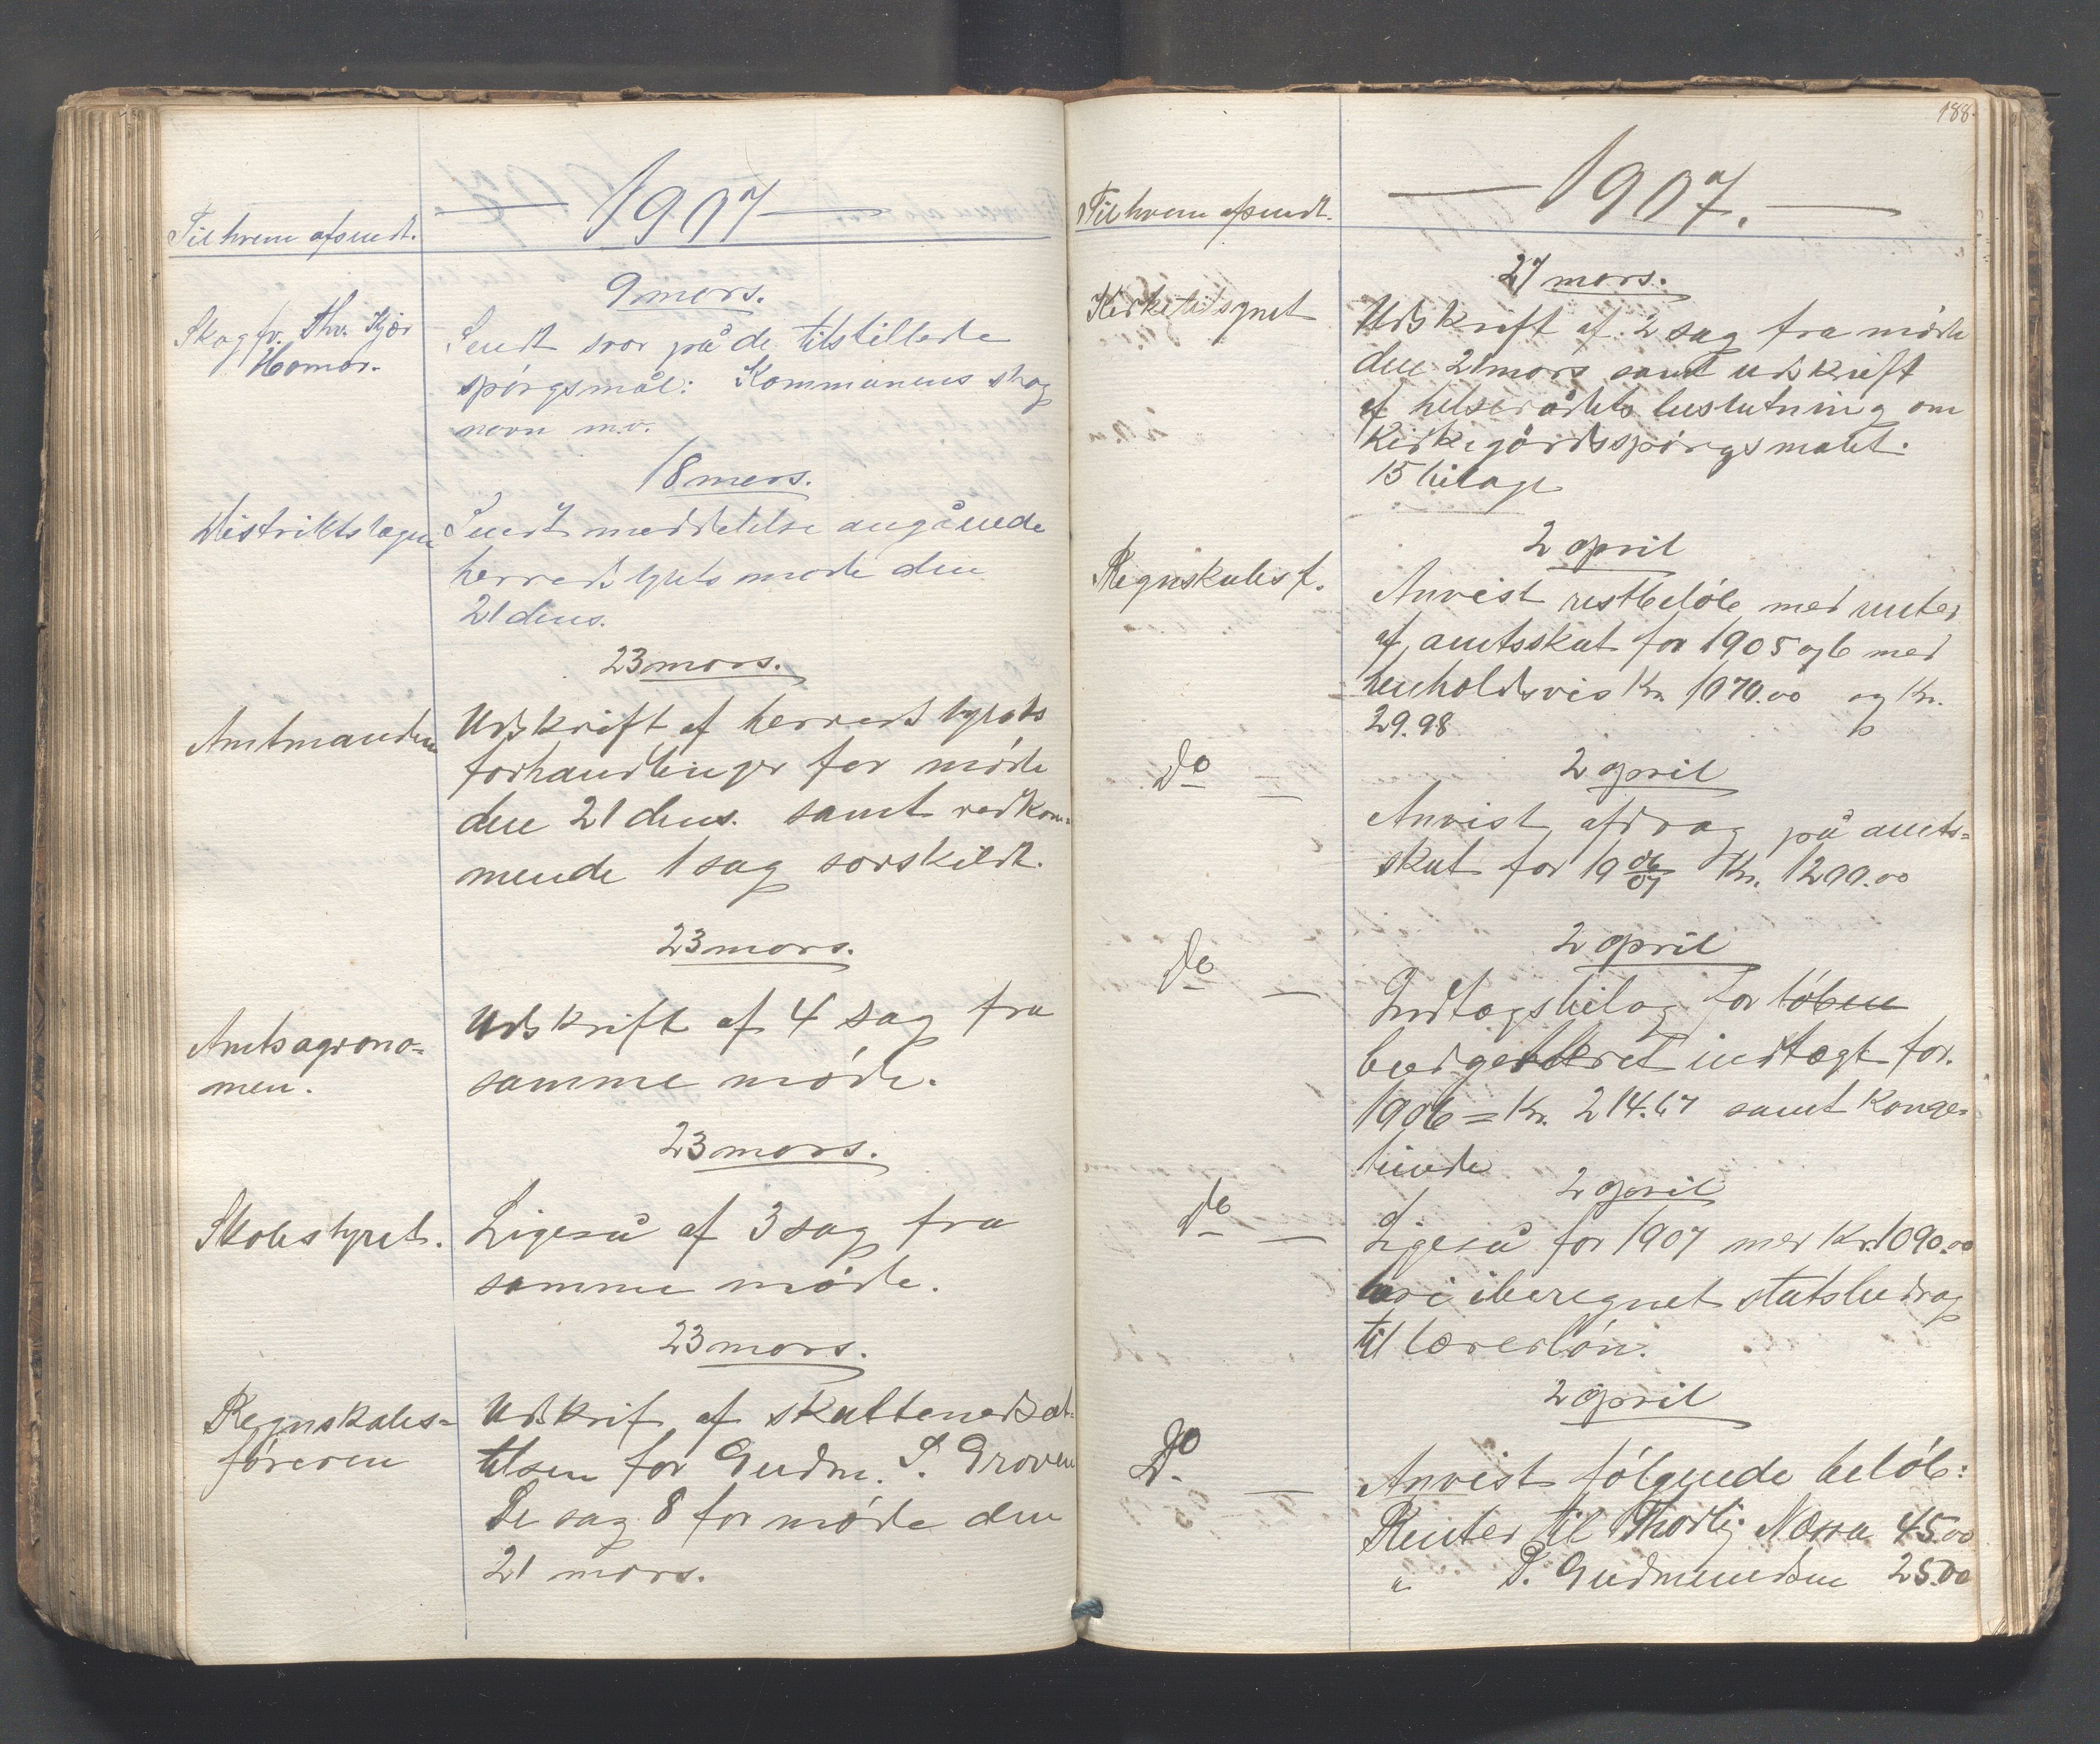 1907
Til hvem afsendt.
9 mars.
Skogfv. Thv. Kjær
Hamar.
Sendt svar på de tilstillede
spørgsmål: Kommunens skog
navn m.v.
18 mars.
Distriktslægen
Sendt meddelelse angående
herredstyrets møde den
21 dens.
23 mars.
Amtmanden
Udskrift af herredstyrets
forhandlinger for møde
den 21 dens. samt vedkom-
mende 1 sag særskildt.
23 mars.
Amtsagrono=
men.
Udskrift af 4 sag fra
samme møde.
23 mars.
Skolestyret.
Ligeså af 3 sag fra
samme møde.
23 mars.
Regnskabs=
føreren
Udskrif af skattenedsæt-
telsen for Gudm. S. Groven
Se sag 8 for møde den
21 mars.
188
1907.
Til hvem afsendt.
27 mars.
Kirketilsynet
Udskrift af 2 sag fra møde
den 21 mars samt udskrift
af helserådets beslutning om
Kirkegårdsspørgsmålet.
15 bilage
2 april
Regnskabsf.
Anvist restbeløb med renter
af amtsskat for 1905 og 6 med
henholdsvis Kr. 1070.00 og Kr.
29.98
Do —
2 april
Anvist afdrag på amts=
skat for 19 06/07 Kr. 1200.00
2 april
Do —
Indtægsbilag for løben
budgetteret indtægt for
1906 = Kr. 214.67 samt Konge-
tiende
2 april
Do —
Ligeså for 1907 med Kr. 1090.00
heri iberegnet statsbidrag
til lærerløn.
2 april
Do —
Anvist følgende beløb:
Renter til Thorbj. Næssa 45.00
" S. Gudmundsen 25.00